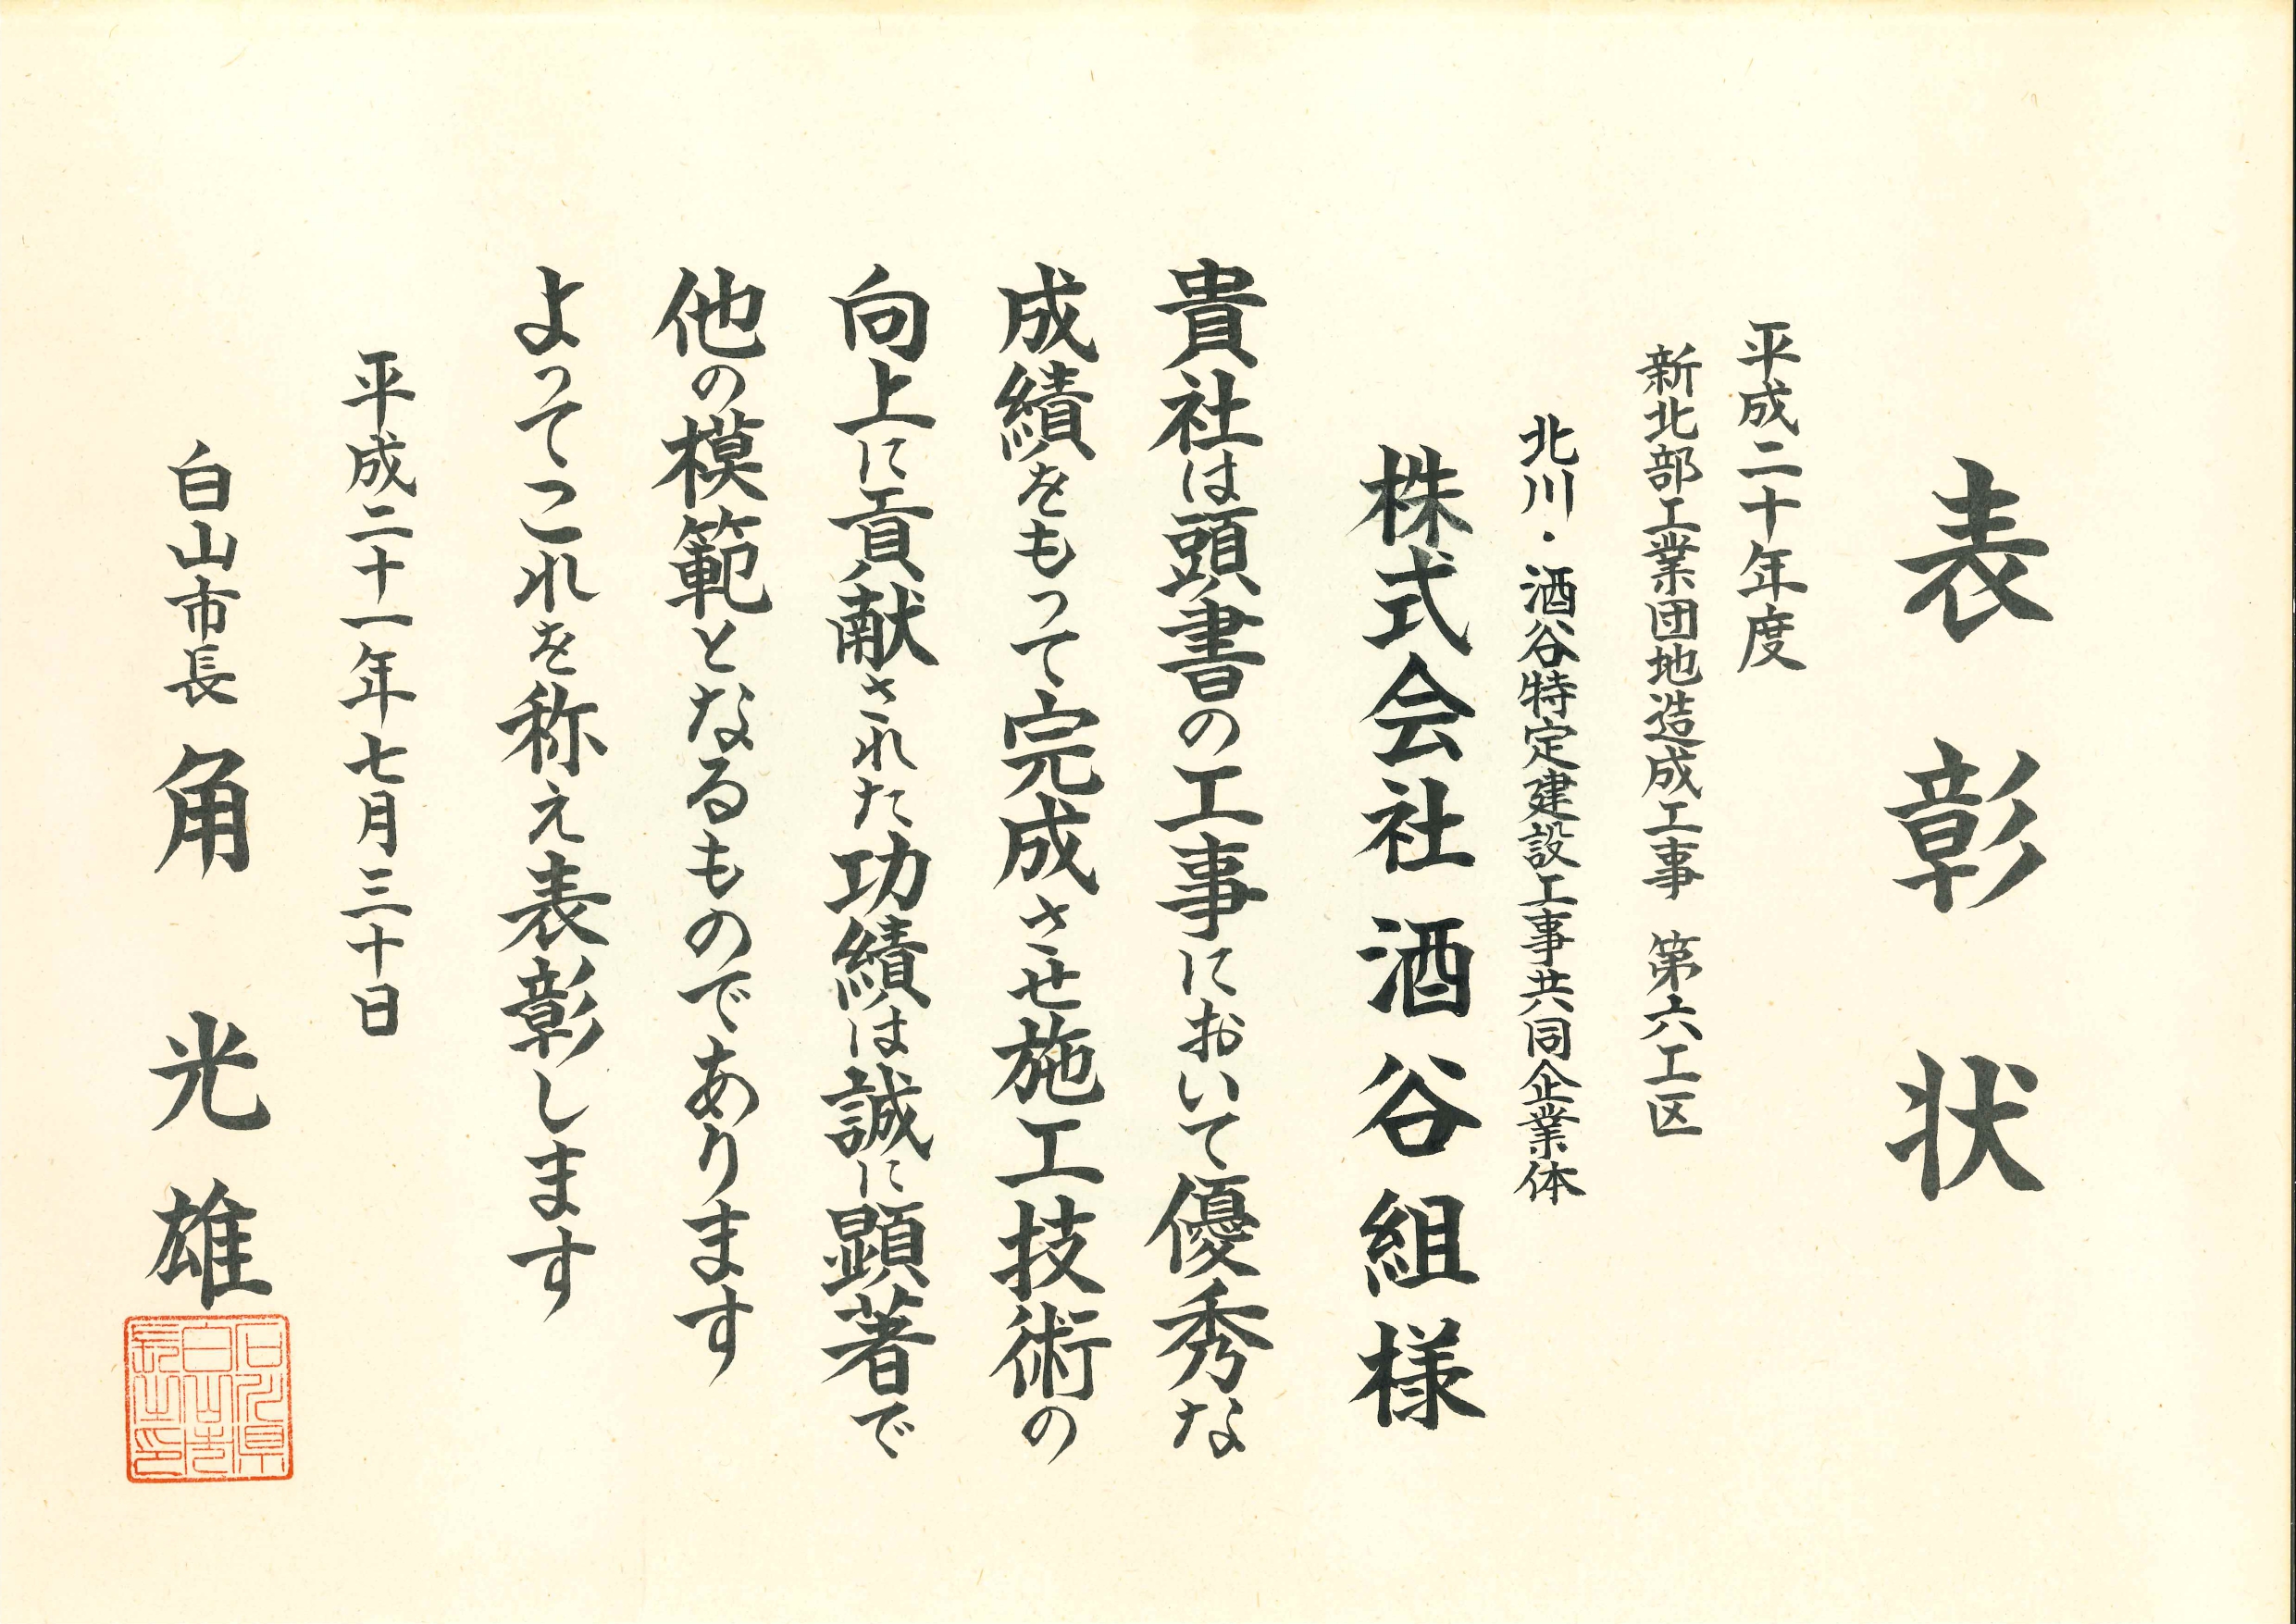 表彰状
平成二十年度
新北部工業団地造成工事 第六工区
北川・酒谷特定建設工事共同企業体
株式会社 酒谷組 様
貴社は頭書の工事において優秀な
成績をもって完成させ施工技術の
向上に貢献された功績は誠に顕著で
他の模範となるものであります
よってこれを称え表彰します
平成二十一年七月三十日
白山市長 角 光雄
石川県
白山市
長之印